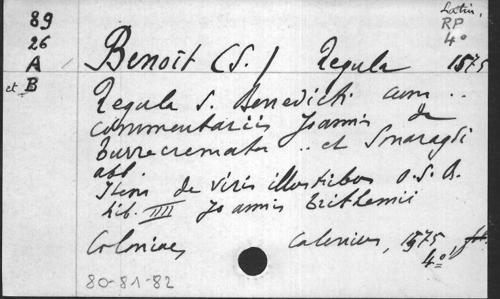 89
26
A
et B
Latin.
RP
4º
Benoît (S.) Regula 1575
Regula S. Benedicti cum ..
commentariis Joannis de
Turrecremata .. et Smaragdi
abb.
Item de viris illustribus O.S.B.
Lib. IIII Joannis Trithemii
Coloniae Calenius, 1575,
4º
80-81-82